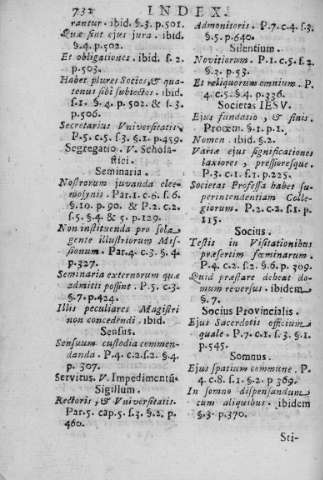 732 INDEX.
rantur. ibid. §.3. p.501.
Quæ sint ejus jura. ibid.
§.4. p.502.
Et obligationes. ibid. s.2.
p.503.
Habet plures Socios, & quatenus
sibi subjectos. ibid.
s.1. §.4. p.502. & s.3.
p.506.
Secretarius Universitatis.
P.5. c.5. s.3. §.1. p.459.
Segregatio. V. Scholastici.
Seminaria.
Nostrorum juvanda eleemosynis.
Par.1. c.6. s.6.
§.10. p.90. & P.2. c.2.
s.5. §.4. & 5. p.129.
Non instituenda pro sola
gente illustriorum Missionum.
Par.4. c.3. §.4.
p.327.
Seminaria externorum quæ
admitti possint. P.5. c.3.
§.7. p.424.
Illis peculiares Magistri
non concedendi. ibid.
Sensus.
Sensuum custodia commendanda.
P.4. c.2. s.2. §.4.
p. 307.
Servitus. V. Impedimentū
Sigillum.
Rectoris, & Universitatis.
Par.5. cap.5. s.3. §.2. p.
460.
Admonitoris. P.7. c.4. s.3.
§.5. p.640.
Silentium.
Novitiorum. P.1. c.5. s.2.
§.2. p.53.
Et reliquorum omnium. P.
4. c.5. §.4. p.336.
Societas IESV.
Ejus fundatio, & finis.
Procem. §.1. p.1.
Nomen. ibid. §.2.
Variæ ejus significationes
laxiores, pressiúresque.
P.3. c.1. s.1. p.225.
Societas Professa habet superintendentiam
Collegiorum.
P.2. c.2. s.1. p.
115.
Socius.
Testis in Visitationibus
præsertim fœminarum.
P.4. c.2. s.2. §.6. p.309.
Quid præstare debeat domum
reversus. ibidem
§.7.
Socius Provincialis.
Ejus Sacerdotis officium
quale. P.7. c.1. s.3. §.1.
p.545.
Somnus.
Ejus spatium commune. P.
4. c.8. s.1. §.2. p 369.
In somno dispensandum
cum aliquibus. ibidem
§.3. p.370.
Sti-